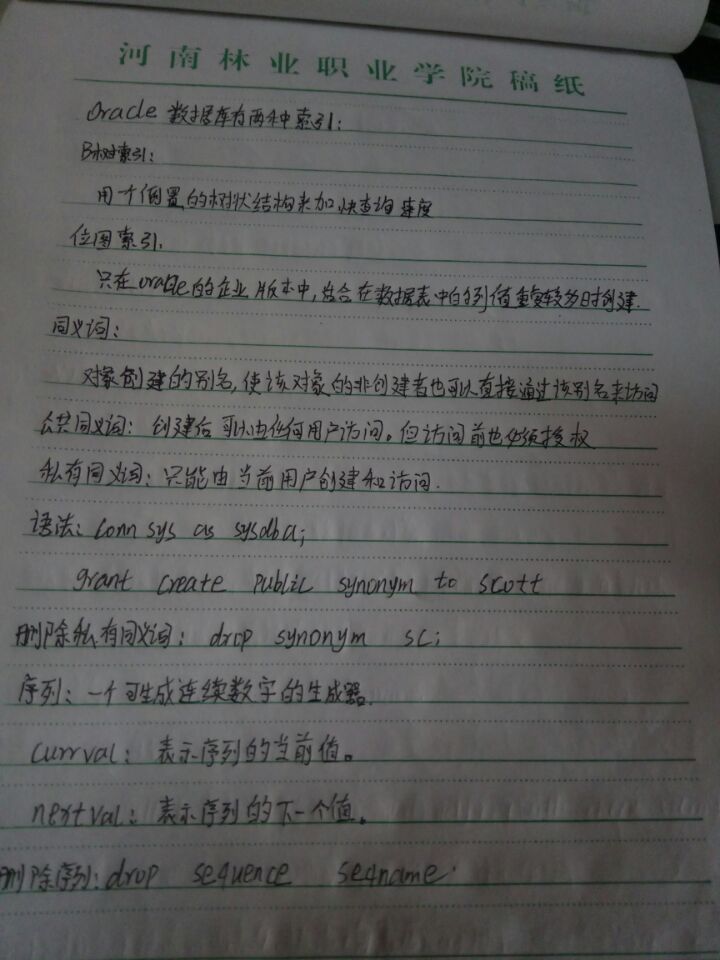 河南林业职业学院稿纸
Oracle 数据库有两种索引:
B树索引:
用个倒置的树状结构来加快查询速度
位图索引:
只在oracle的企业版本中,适合在数据表中的列值重复较多时创建.
同义词:
对象创建的别名,使该对象的非创建者也可以直接通过该别名来访问
公共同义词: 创建后可以由任何用户访问。但访问前也必须授权
私有同义词: 只能由当前用户创建和访问.
语法: conn sys as sysdba;
grant create public synonym to scott
删除私有同义词: drop synonym sc;
序列: 一个可生成连续数字的生成器.
currval: 表示序列的当前值。
nextval: 表示序列的下一个值。
删除序列: drop sequence seqname.